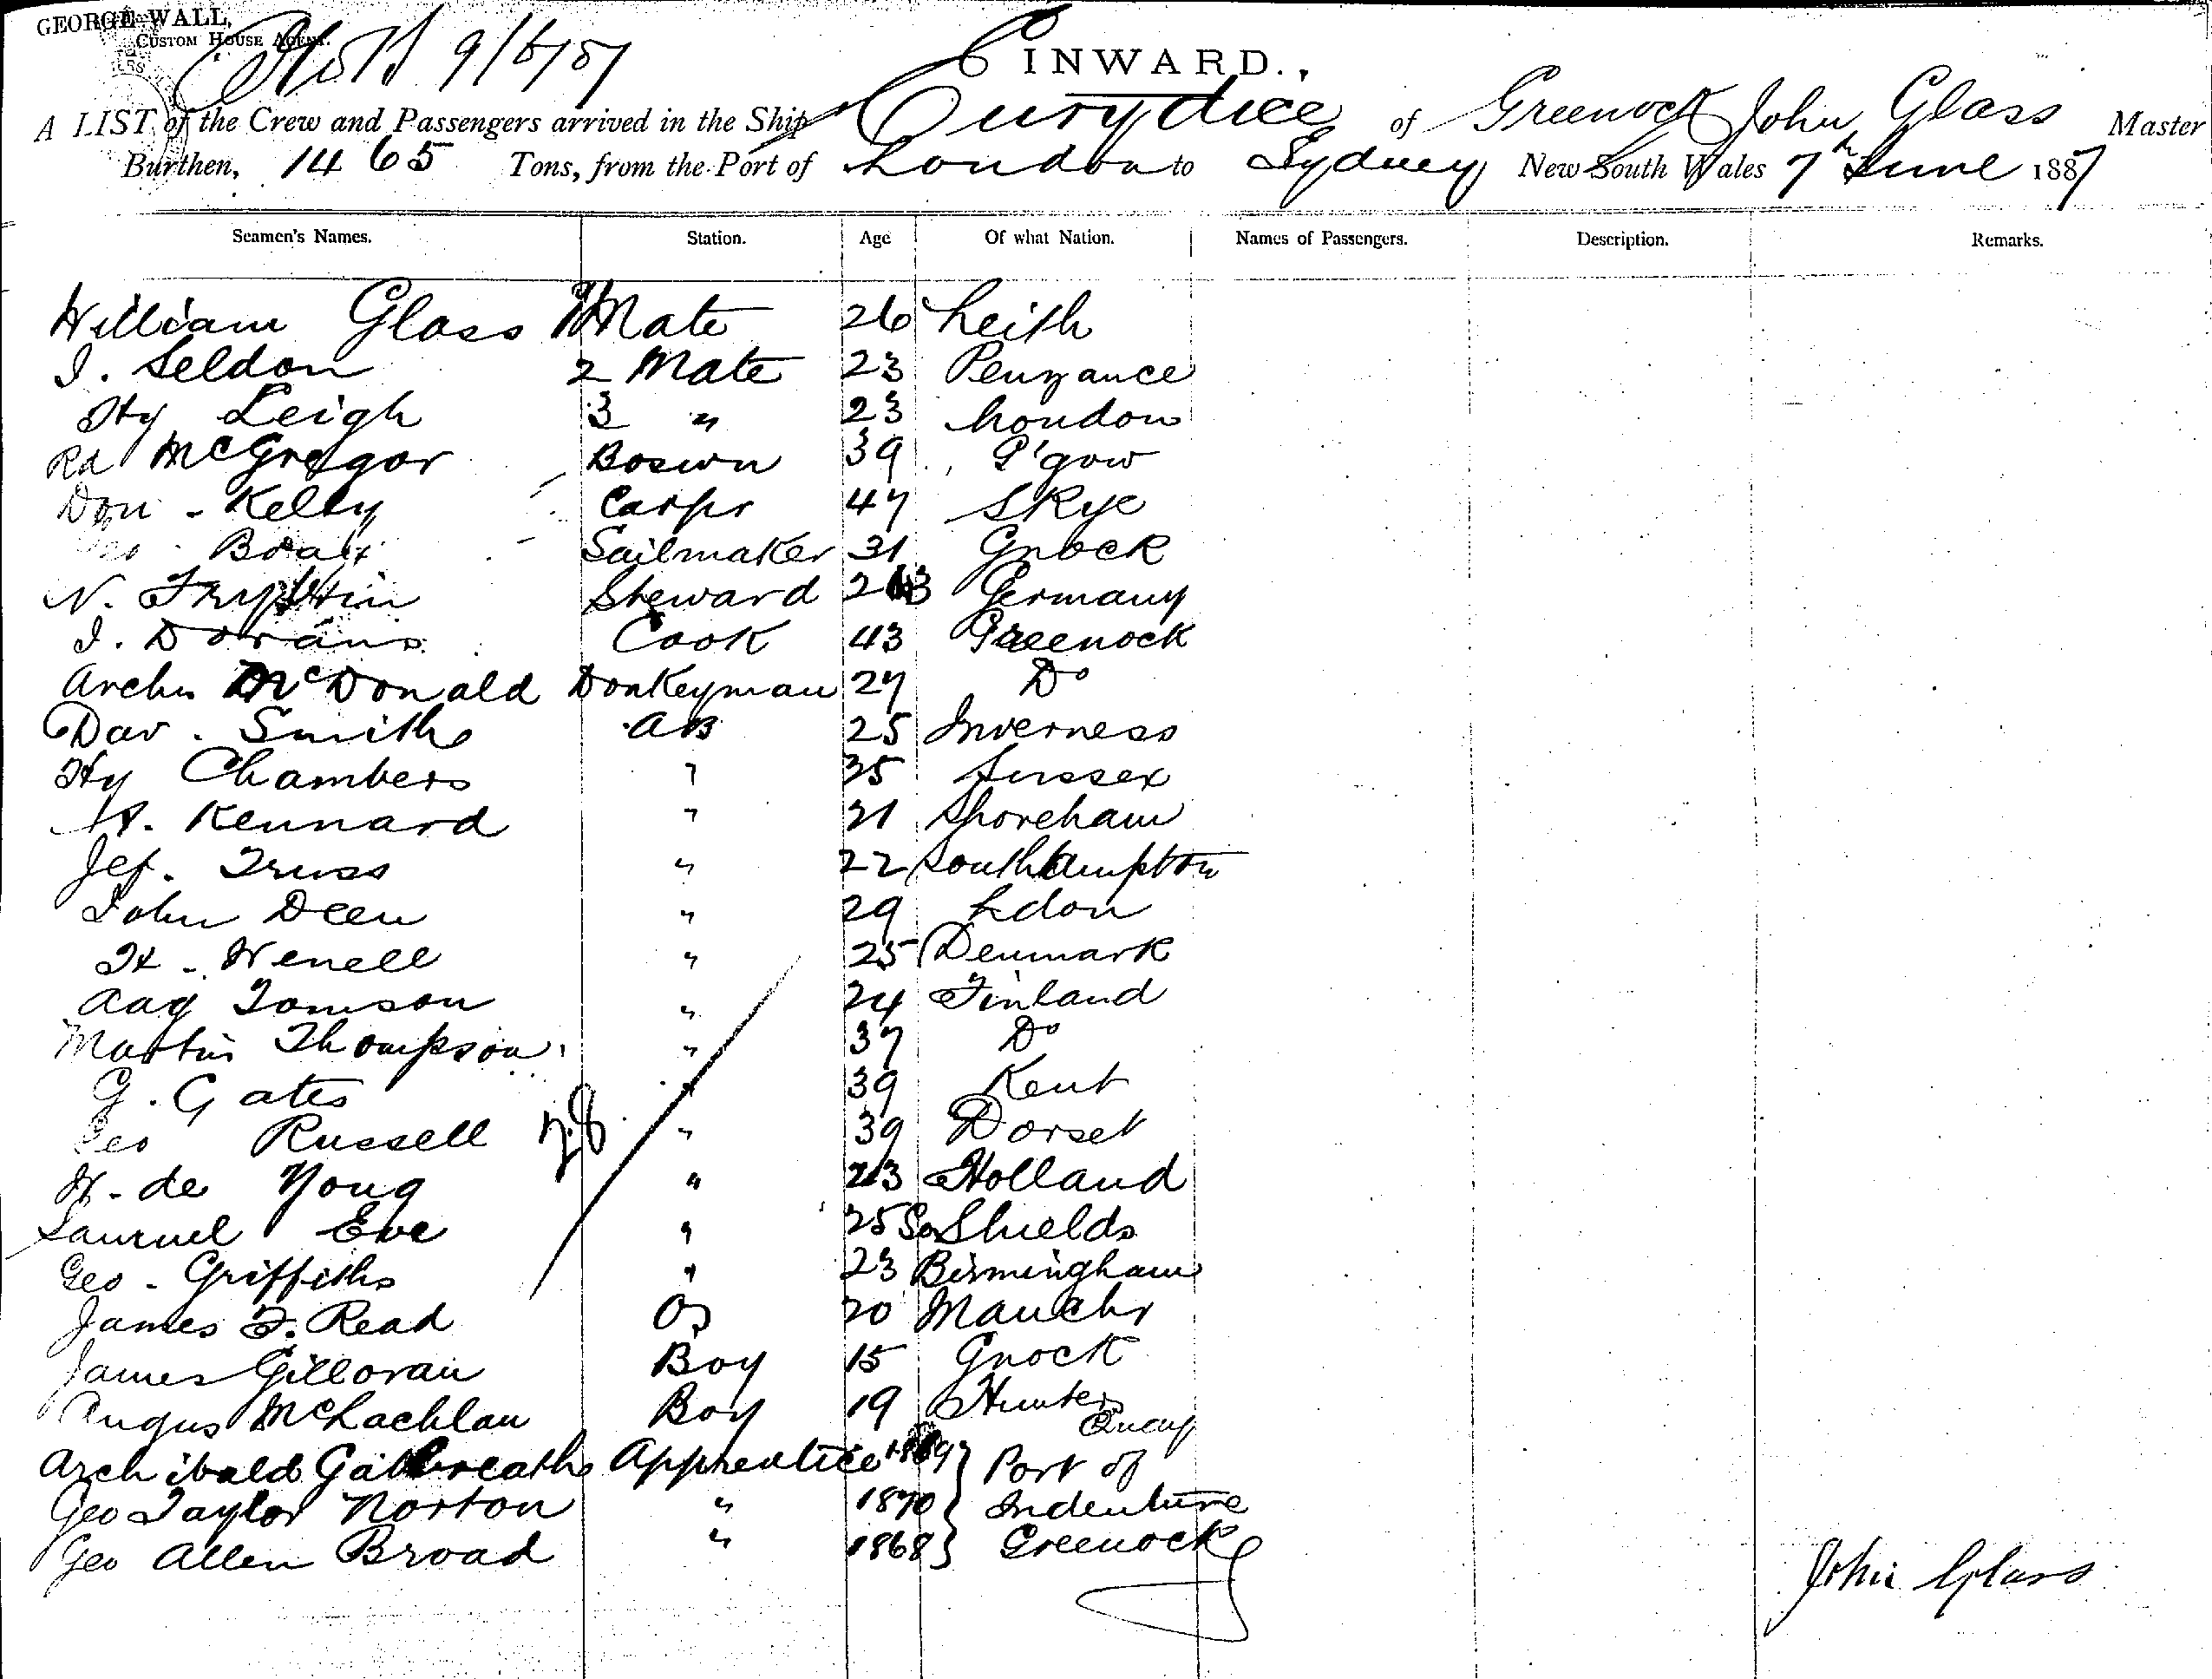 GEORGE WALL,
CUSTOM HOUSE AGENT.
9/6/87
INWARD.,
A LIST of the Crew and Passengers arrived in the Ship Eurydice of Greenock John Glass Master
Burthen, 1465 Tons, from the Port of London to Sydney New South Wales 7th June 1887
Seamen's Names. Station. Age Of what Nation. Names of Passengers. Description. Remarks.
William Glass 1 Mate 26 Leith
J. Seldon 2 Mate 23 Penzance
Hy Leigh 3 " 23 London
Rd McGregor Boswn 39 G'gow
Don - Kelly Carpr 47 Skye
Sailmaker 31 Gnock
N. Steward Germany
J. Dorans Cook 43 Greenock
Archd McDonald Donkeyman 27 Do
Dav. Smith AB 25 Inverness
Hy Chambers " 35 Sussex
A. Kennard " 21 Shoreham
Jef. Truss " 22 Southampton
John Deen " 29 Ldon
H. Wenell " 25 Denmark
Aag Tomson " 24 Finland
Martin Thompson " 37 Do
G. Gates " 39 Kent
Geo Russell " 39 Dorset
28
H. de Yong " 23 Holland
Samuel Eve " 25 So Shields
Geo - Griffiths " 23 Birmingham
James F. Read OS 20 Manchr
James Gilloran Boy 15 Gnock
Angus McLachlan Boy 19 Hunters Quay
Archibald Galbreath Apprentice 1869 } Port of
Geo Taylor Norton " 1870 } Indenture
Geo Allen Broad " 1868 } Greenock
John Glass